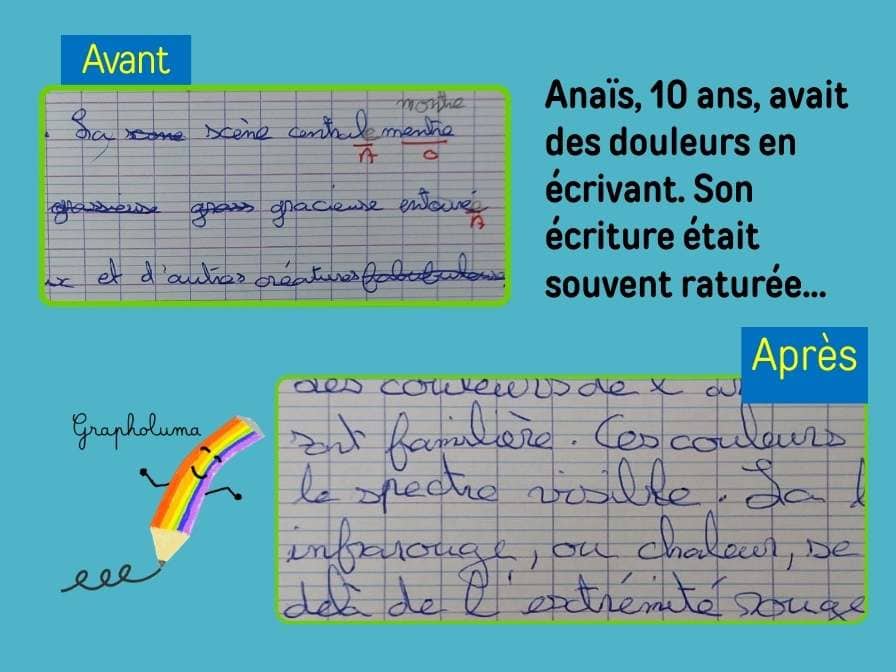 Avant
Anaïs, 10 ans, avait
des douleurs en
écrivant. Son
écriture était
souvent raturée...
montre
La scène centrale mentre
A O
grassieuse grass gracieuse entourée
A
x et d'autres créatures fabubuleuse
Après
des couleurs de l'
sont familière. Ces couleurs
le spectre visible. La l
infrarouge, ou chaleur, se
delà de l'extrémité rouge
Grapholuma